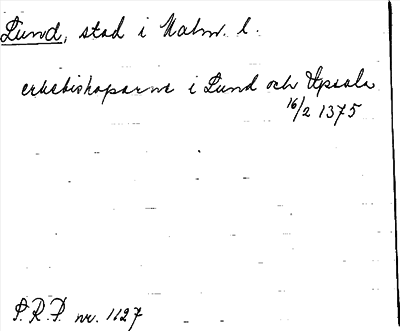 Lund, stad i Malm. l.
erkebiskoparne i Lund och Upsala
16/2 1375
S.R.P. nr. 1127